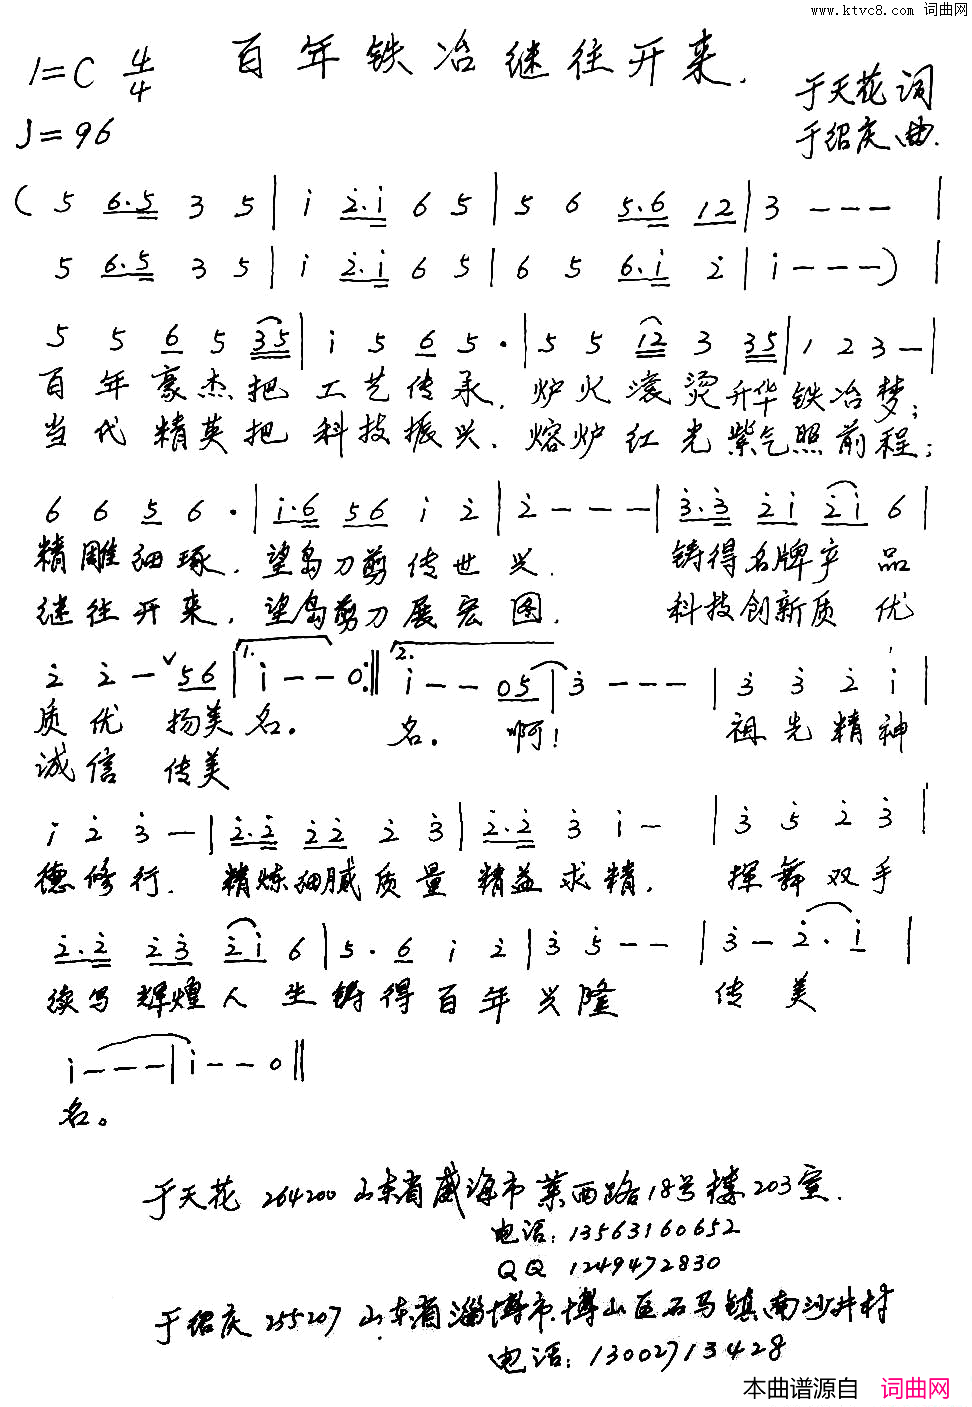 www.ktvc8.com 词曲网
1=C 4/4 百年铁冶继往开来.
于天花词
♩=96
于绍庆曲.
( 5 6.5 3 5 | i 2.i 6 5 | 5 6 5.6 12 | 3 --- |
5 6.5 3 5 | i 2.i 6 5 | 6 5 6.i 2 | i --- ) |
5 5 6 5 35 | i 5 6 5 · | 5 5 12 3 35 | 1 2 3 — |
百年豪杰把工艺传承,炉火滚烫升华铁冶梦;
当代精英把科技振兴.熔炉红光紫气照前程;
6 6 5 6 · | i.6 56 i 2 | 2 - - - | 3.3 2i 2i 6 |
精雕细琢.望岛刀剪传世兴. 铸得名牌产品
继往开来.望岛剪刀展宏图. 科技创新质优
2 2 — ∨ 56 | 1. i -- 0 :| 2. i -- 05 | 3 --- | 3 3 2 i |
质优 扬美名。 名。 啊! 祖先精神
诚信 传美
i 2 3 — | 2.2 22 2 3 | 2.2 3 i - | 3 5 2 3 |
德修行. 精炼细腻质量 精益求精. 挥舞双手
2.2 23 2i 6 | 5.6 i 2 | 3 5 -- | 3 — 2.i |
续写辉煌人生铸得百年兴隆 传美
i --- | i -- 0 ‖
名。
于天花 264200 山东省威海市菜西路18号楼203室.
电话:13563160652
QQ 1249472830
于绍庆 255207 山东省淄博市.博山区石马镇南沙井村
电话:13002713428
本曲谱源自 词曲网